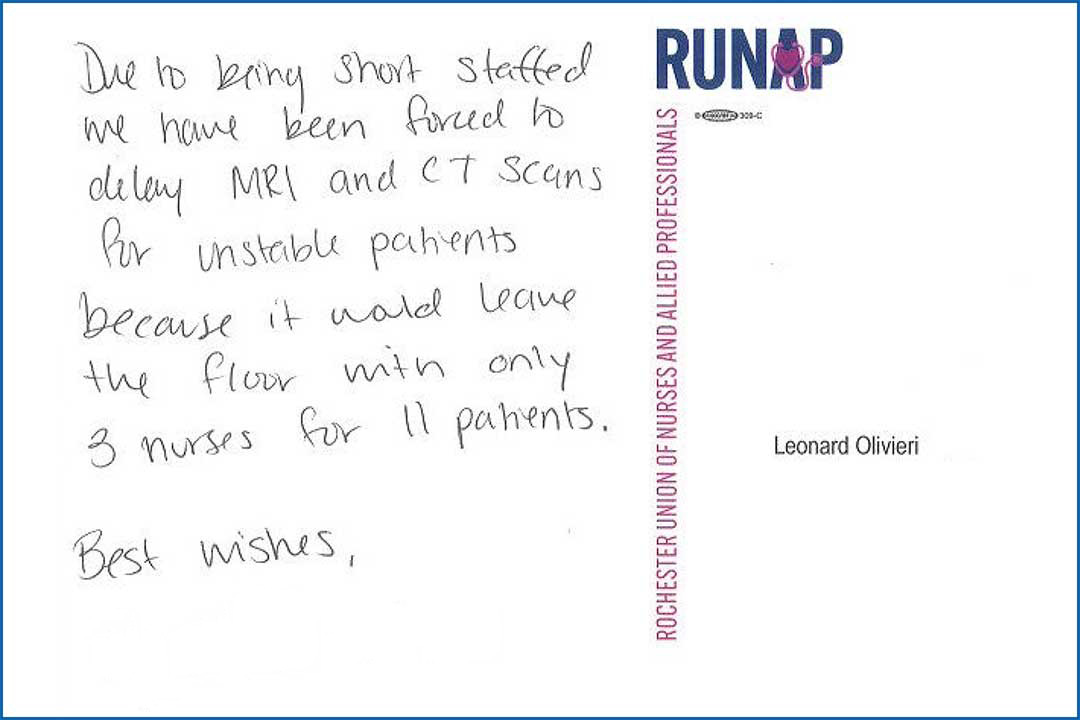 Due to being short staffed
we have been forced to
delay MRI and CT scans
for unstable patients
because it would leave
the floor with only
3 nurses for 11 patients.
Best wishes,
RUNAP
309-C
ROCHESTER UNION OF NURSES AND ALLIED PROFESSIONALS
Leonard Olivieri